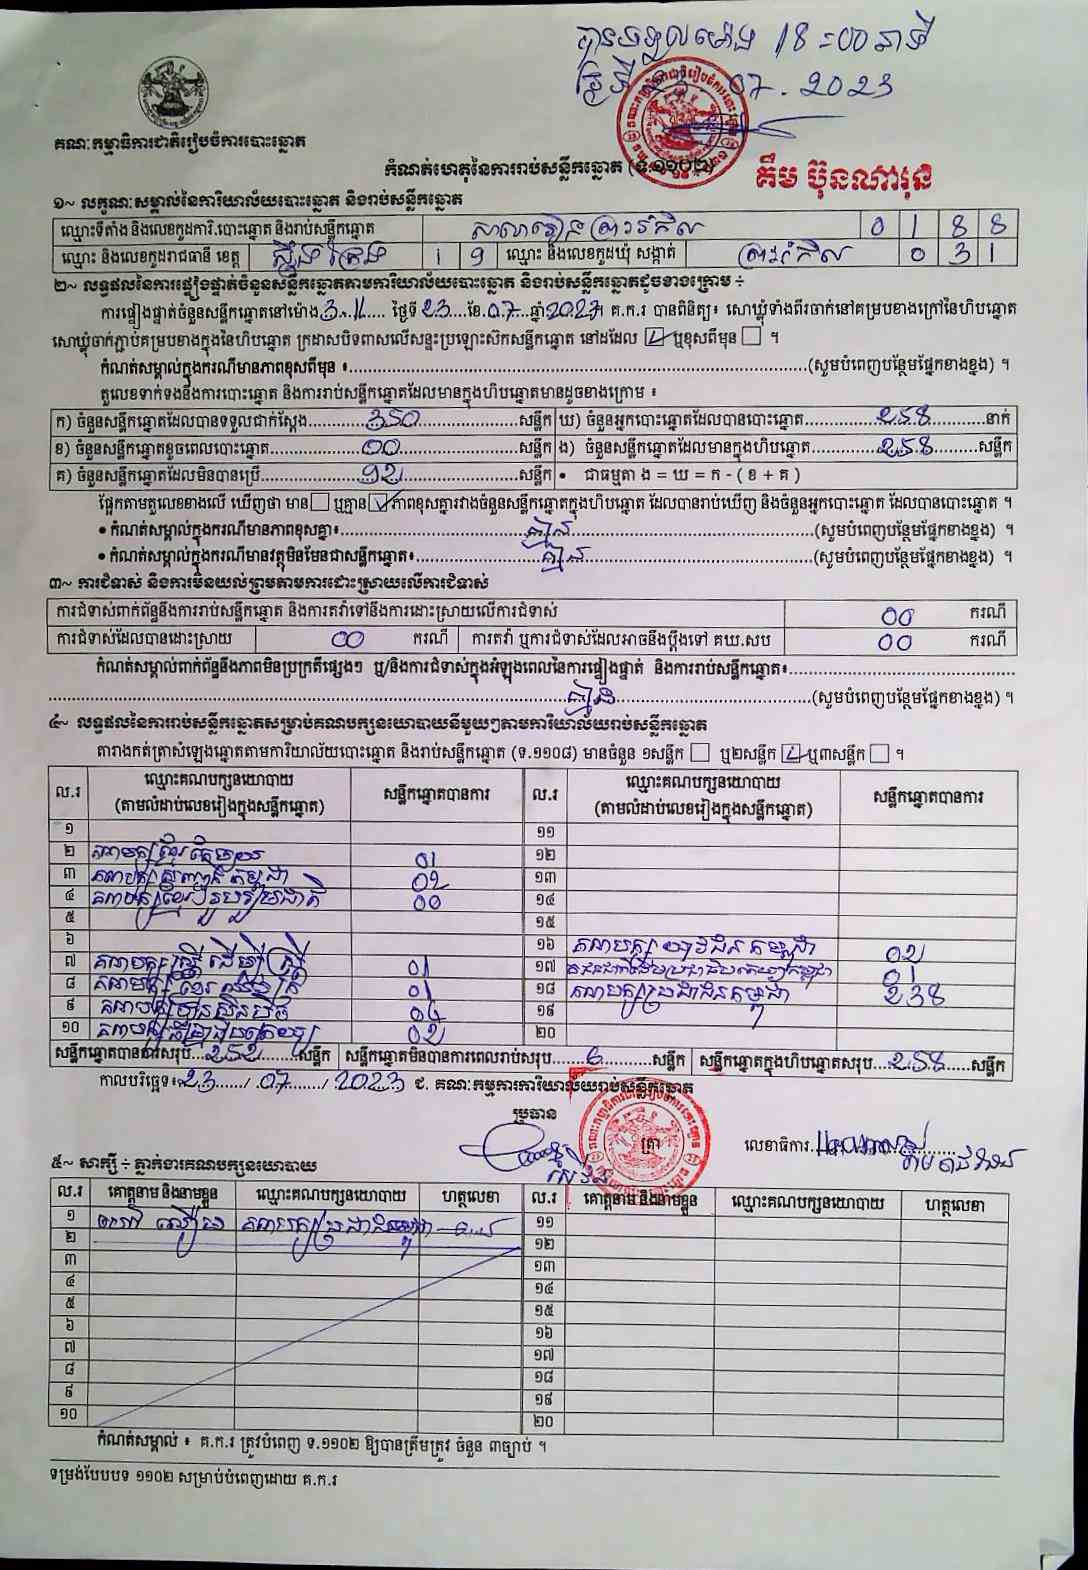 បានទទួលម៉ោង 18:00 នាទី
ថ្ងៃទី 07. 2023
គណៈកម្មាធិការជាតិរៀបចំការបោះឆ្នោត
កំណត់ហេតុនៃការរាប់សន្លឹកឆ្នោត (ទ.១១០២)
គឹម ប៊ុនណារុន
១~ លក្ខណៈសម្គាល់នៃការិយាល័យបោះឆ្នោត និងរាប់សន្លឹកឆ្នោត
ឈ្មោះទីតាំង និងលេខកូដការិ.បោះឆ្នោត និងរាប់សន្លឹកឆ្នោត 0 1 8 8
ឈ្មោះ និងលេខកូដរាជធានី ខេត្ត ស្ទឹងត្រែង 1 9 ឈ្មោះ និងលេខកូដឃុំ សង្កាត់ 0 3 1
២~ លទ្ធផលនៃការផ្ទៀងផ្ទាត់ចំនួនសន្លឹកឆ្នោតតាមការិយាល័យបោះឆ្នោត និងរាប់សន្លឹកឆ្នោតដូចខាងក្រោម ÷
ការផ្ទៀងផ្ទាត់ចំនួនសន្លឹកឆ្នោតនៅម៉ោង 3:11 ថ្ងៃទី 23 ខែ 07 ឆ្នាំ 2023 គ.ក.រ បានពិនិត្យ៖ សោឃ្លុំទាំងពីរចាក់នៅគម្របខាងក្រៅនៃហិបឆ្នោត
សោឃ្លុំចាក់ភ្ជាប់គម្របខាងក្នុងនៃហិបឆ្នោត ក្រដាសបិទពាសលើសន្ទះប្រឡោះស៊កសន្លឹកឆ្នោត នៅដដែល ឬខុសពីមុន ។
កំណត់សម្គាល់ក្នុងករណីមានភាពខុសពីមុន ៖ (សូមបំពេញបន្ថែមផ្នែកខាងខ្នង) ។
តួលេខទាក់ទងនឹងការបោះឆ្នោត និងការរាប់សន្លឹកឆ្នោតដែលមានក្នុងហិបឆ្នោតមានដូចខាងក្រោម ៖
ក) ចំនួនសន្លឹកឆ្នោតដែលបានទទួលជាក់ស្តែង 350 សន្លឹក ឃ) ចំនួនអ្នកបោះឆ្នោតដែលបានបោះឆ្នោត 258 នាក់
ខ) ចំនួនសន្លឹកឆ្នោតខូចពេលបោះឆ្នោត 00 សន្លឹក ង) ចំនួនសន្លឹកឆ្នោតដែលមានក្នុងហិបឆ្នោត 258 សន្លឹក
គ) ចំនួនសន្លឹកឆ្នោតដែលមិនបានប្រើ 92 សន្លឹក • ជាធម្មតា ង = ឃ = ក - ( ខ + គ )
ផ្អែកតាមតួលេខខាងលើ ឃើញថា មាន ឬគ្មាន ភាពខុសគ្នារវាងចំនួនសន្លឹកឆ្នោតក្នុងហិបឆ្នោត ដែលបានរាប់ឃើញ និងចំនួនអ្នកបោះឆ្នោត ដែលបានបោះឆ្នោត ។
• កំណត់សម្គាល់ក្នុងករណីមានភាពខុសគ្នា៖ គ្មាន (សូមបំពេញបន្ថែមផ្នែកខាងខ្នង) ។
• កំណត់សម្គាល់ក្នុងករណីមានវត្ថុមិនមែនជាសន្លឹកឆ្នោត៖ គ្មាន (សូមបំពេញបន្ថែមផ្នែកខាងខ្នង) ។
៣~ ការជំទាស់ និងការមិនយល់ព្រមតាមការដោះស្រាយលើការជំទាស់
ការជំទាស់ពាក់ព័ន្ធនឹងការរាប់សន្លឹកឆ្នោត និងការតវ៉ាទៅនឹងការដោះស្រាយលើការជំទាស់ 00 ករណី
ការជំទាស់ដែលបានដោះស្រាយ 00 ករណី ការតវ៉ា ឬការជំទាស់ដែលអាចនឹងប្តឹងទៅ គឃ.សប 00 ករណី
កំណត់សម្គាល់ពាក់ព័ន្ធនឹងភាពមិនប្រក្រតីផ្សេងៗ ឬ/និងការជំទាស់ក្នុងអំឡុងពេលនៃការផ្ទៀងផ្ទាត់ និងការរាប់សន្លឹកឆ្នោត៖
គ្មាន (សូមបំពេញបន្ថែមផ្នែកខាងខ្នង) ។
៤~ លទ្ធផលនៃការរាប់សន្លឹកឆ្នោតសម្រាប់គណបក្សនយោបាយនីមួយៗតាមការិយាល័យរាប់សន្លឹកឆ្នោត
តារាងកត់ត្រាសំឡេងឆ្នោតតាមការិយាល័យបោះឆ្នោត និងរាប់សន្លឹកឆ្នោត (ទ.១១០៨) មានចំនួន ១សន្លឹក ឬ២សន្លឹក ឬ៣សន្លឹក ។
ល.រ ឈ្មោះគណបក្សនយោបាយ (តាមលំដាប់លេខរៀងក្នុងសន្លឹកឆ្នោត) សន្លឹកឆ្នោតបានការ ល.រ ឈ្មោះគណបក្សនយោបាយ (តាមលំដាប់លេខរៀងក្នុងសន្លឹកឆ្នោត) សន្លឹកឆ្នោតបានការ
១ ១១
២ 01 ១២
៣ 02 ១៣
៤ គណបក្សខ្មែររួបរួមជាតិ 00 ១៤
៥ ១៥
៦ ១៦ គណបក្សយុវជនកម្ពុជា 02
៧ 01 ១៧ 01
៨ 01 ១៨ គណបក្សប្រជាជនកម្ពុជា 238
៩ 04 ១៩
១០ 02 ២០
សន្លឹកឆ្នោតបានការសរុប 252 សន្លឹក សន្លឹកឆ្នោតមិនបានការពេលរាប់សរុប 6 សន្លឹក សន្លឹកឆ្នោតក្នុងហិបឆ្នោតសរុប 258 សន្លឹក
កាលបរិច្ឆេទ៖ 23 / 07 / 2023 ជ. គណៈកម្មការការិយាល័យរាប់សន្លឹកឆ្នោត
ប្រធាន
ត្រា លេខាធិការ
៥~ សាក្សី ÷ ភ្នាក់ងារគណបក្សនយោបាយ
ល.រ គោត្តនាម និងនាមខ្លួន ឈ្មោះគណបក្សនយោបាយ ហត្ថលេខា ល.រ គោត្តនាម និងនាមខ្លួន ឈ្មោះគណបក្សនយោបាយ ហត្ថលេខា
១ គណបក្សប្រជាជនកម្ពុជា ១១
២ ១២
៣ ១៣
៤ ១៤
៥ ១៥
៦ ១៦
៧ ១៧
៨ ១៨
៩ ១៩
១០ ២០
កំណត់សម្គាល់ ៖ គ.ក.រ ត្រូវបំពេញ ទ.១១០២ ឱ្យបានត្រឹមត្រូវ ចំនួន ៣ច្បាប់ ។
ទម្រង់បែបបទ ១១០២ សម្រាប់បំពេញដោយ គ.ក.រ